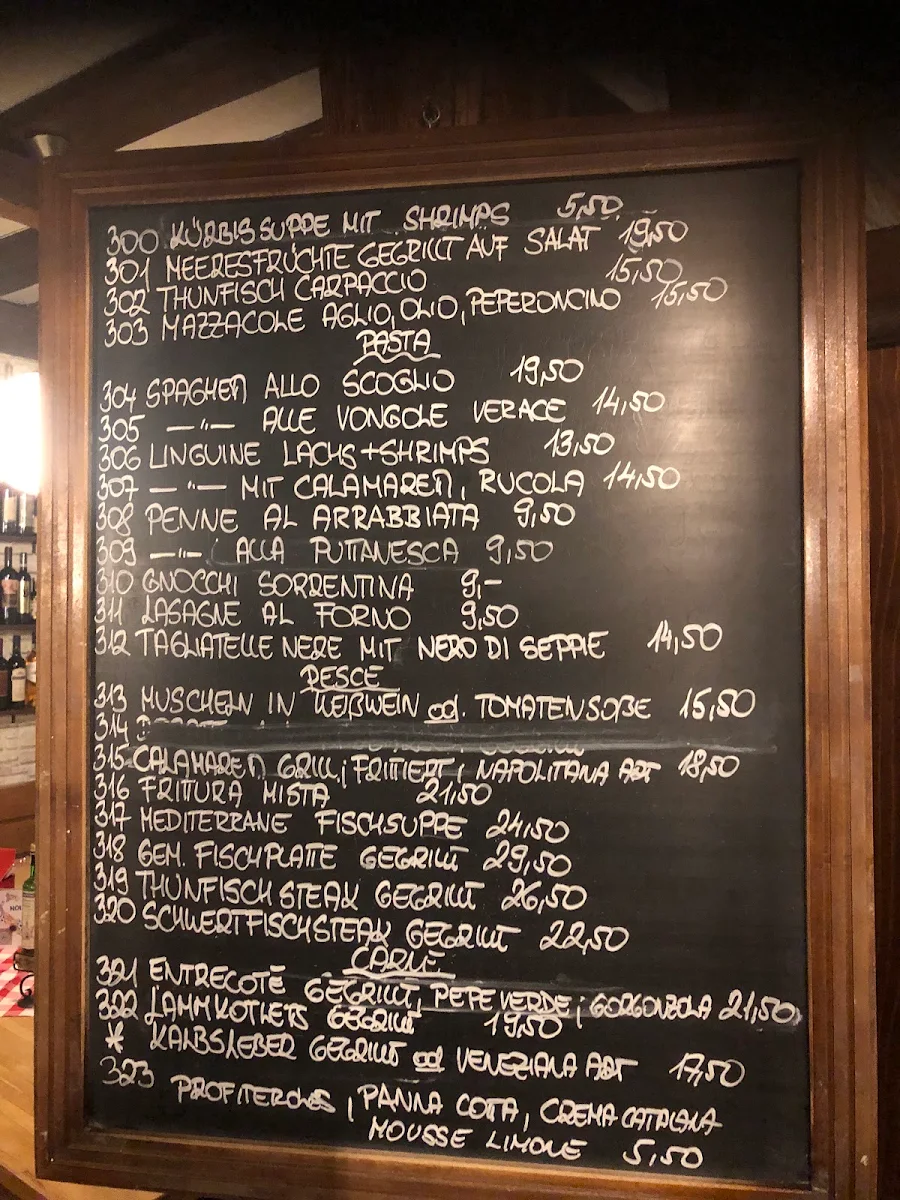 300 KÜRBISSUPPE MIT SHRIMPS 5,50
301 MEERESFRÜCHTE GEGRILLT AUF SALAT 19,50
302 THUNFISCH CARPACCIO 15,50
303 MAZZACOLE AGLIO, OLIO, PEPERONCINO 15,50
PASTA
304 SPAGHETTI ALLO SCOGLIO 19,50
305 —"— ALLE VONGOLE VERACE 14,50
306 LINGUINE LACHS+SHRIMPS 13,50
307 —"— MIT CALAMARETTI, RUCOLA 14,50
308 PENNE AL ARRABBIATA 9,50
309 —"— ALLA PUTTANESCA 9,50
310 GNOCCHI SORRENTINA 9,-
311 LASAGNE AL FORNO 9,50
312 TAGLIATELLE NERE MIT NERO DI SEPPIE 14,50
PESCE
313 MUSCHELN IN WEIßWEIN od. TOMATENSOßE 15,50
314
315 CALAMARETTI GRILL; FRITIERT; NAPOLITANA ART 18,50
316 FRITTURA MISTA 21,50
317 MEDITERRANE FISCHSUPPE 24,50
318 GEM. FISCHPLATTE GEGRILLT 29,50
319 THUNFISCH STEAK GEGRILLT 26,50
320 SCHWERTFISCHSTEAK GEGRILLT 22,50
CARNE
321 ENTRECOTE GEGRILLT, PEPE VERDE; GORGONZOLA 21,50
322 LAMMKOTLETS GEGRILLT 19,50
* KALBSLEBER GEGRILLT od VENEZIANA ART 17,50
323 PROFITEROLES, PANNA COTTA, CREMA CATALANA
MOUSSE LIMONE 5,50